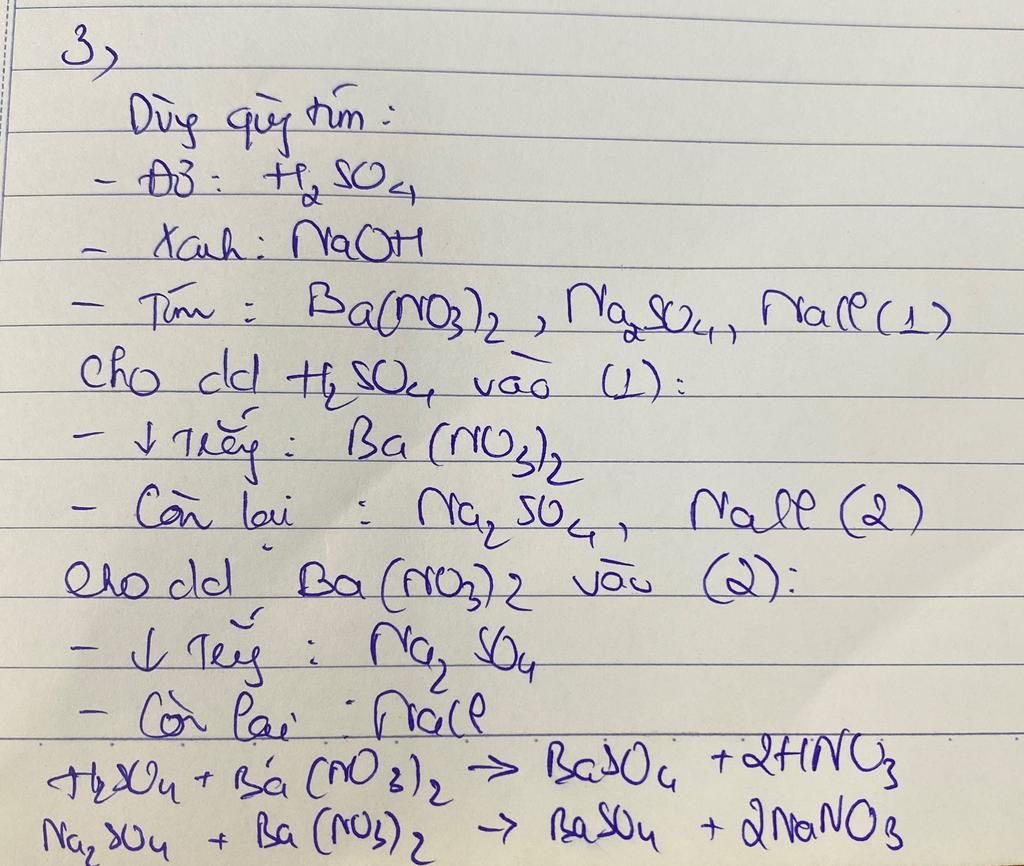 3,
Dùng quỳ tím:
- Đỏ: H₂SO₄
- Xanh: NaOH
- Tím: Ba(NO₃)₂, Na₂SO₄, NaCl (1)
Cho dd H₂SO₄ vào (1):
- ↓ Trắng: Ba(NO₃)₂
- Còn lại: Na₂SO₄, NaCl (2)
Cho dd Ba(NO₃)₂ vào (2):
- ↓ Trắng: Na₂SO₄
- Còn lại: NaCl
H₂SO₄ + Ba(NO₃)₂ → BaSO₄ + 2HNO₃
Na₂SO₄ + Ba(NO₃)₂ → BaSO₄ + 2NaNO₃